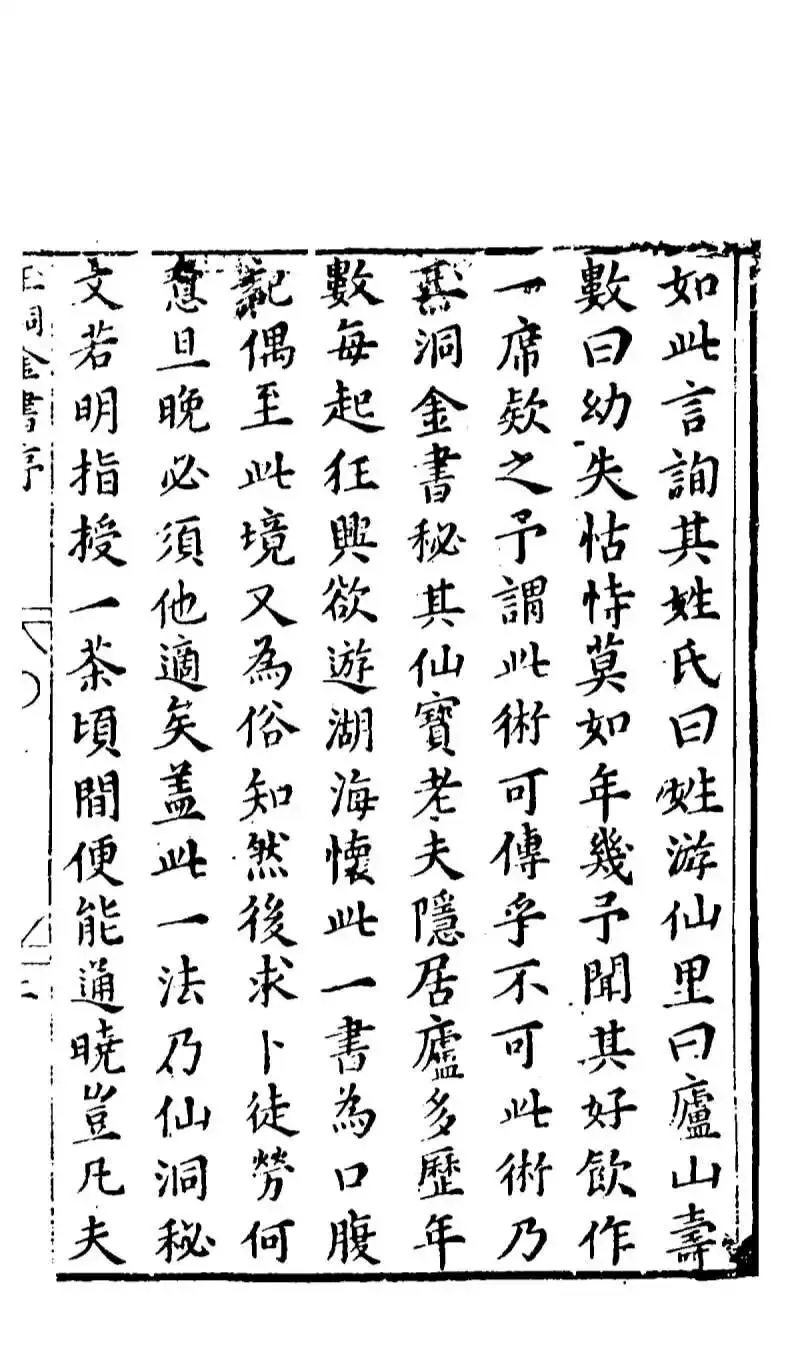 如此言詢其姓氏曰姓游仙里曰廬山壽
數曰幼失怙恃莫如年幾予聞其好飲作
一席欵之予謂此術可傳乎不可此術乃
洞金書秘其仙寶老夫隱居廬多歷年
數每起狂興欲遊湖海懷此一書為口腹
記偶至此境又為俗知然後求卜徒勞何
旦晚必須他適矣盖此一法乃仙洞秘
文若明指授一茶頃間便能通曉豈凡夫
洞金書序